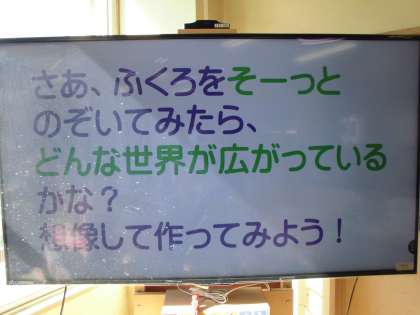 さあ、ふくろをそーっと
のぞいてみたら、
どんな世界が広がっている
かな？
想像して作ってみよう！